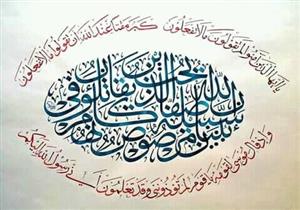 يا أيها الذين آمنوا لم تقولون ما لا تفعلون كبر مقتا عند الله أن تقولوا ما لا تفعلون
إن الله يحب الذين يقاتلون في سبيله صفا كأنهم بنيان مرصوص
وإذ قال موسى لقومه يا قوم لم تؤذونني وقد تعلمون أني رسول الله إليكم